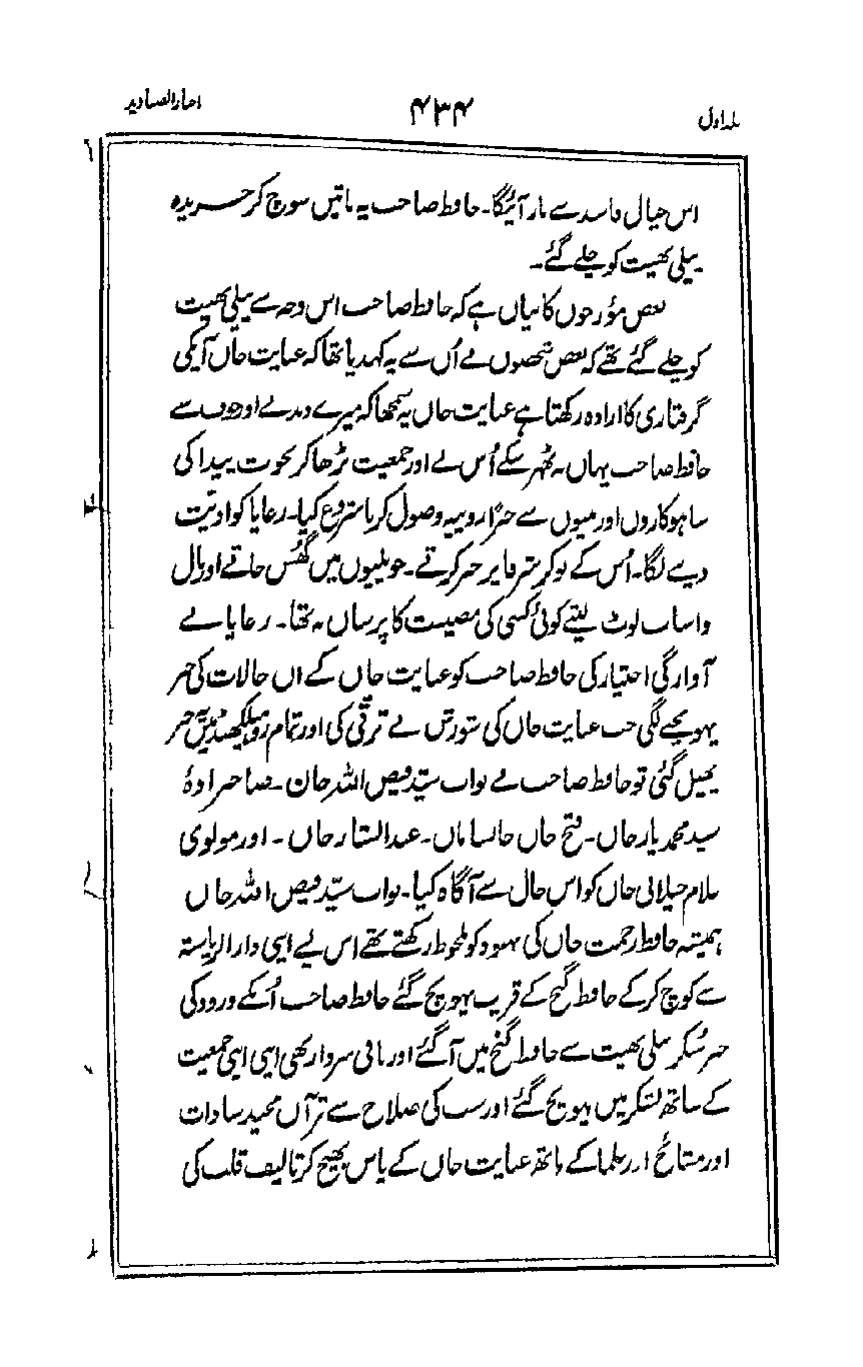 جلد اول ۴۳۴ اخبار الصنادید
اس خیال فاسد سے باز آئیگا۔ حافظ صاحب یہ باتیں سوچ کر جریدہ
پیلی بھیت کو چلے گئے۔
بعض مؤرخوں کا بیان ہے کہ حافظ صاحب اس وجہ سے پیلی بھیت
کو چلے گئے تھے کہ بعض شخصوں نے اُن سے یہ کہدیا تھا کہ عنایت خاں آپکی
گرفتاری کا ارادہ رکھتا ہے عنایت خاں یہ سمجھا کہ میرے دبدبے اور خوف سے
حافظ صاحب یہاں نہ ٹھہر سکے اُس نے اور جمعیت بڑھا کر نخوت پیدا کی
ساہوکاروں اور بنیوں سے جبراً روپیہ وصول کرنا شروع کیا۔ رعایا کو اذیت
دینے لگا۔ اُس کے نوکر شرفا پر جبر کرتے۔ حویلیوں میں گھُس جاتے اور مال
و اسباب لوٹ لیتے کوئی کسی کی مصیبت کا پرساں نہ تھا۔ رعایا نے
آوارگی اختیار کی حافظ صاحب کو عنایت خاں کے ان حالات کی خبر
پہونچنے لگی جب عنایت خاں کی شورش نے ترقی کی اور تمام روہیلکھنڈ میں یہ خبر
پھیل گئی تو حافظ صاحب نے نواب سیّد فیض اللہ خان۔ صاحبزادۂ
سید محمد یار خاں۔ فتح خاں خانساماں۔ عبدالستار خاں۔ اور مولوی
غلام جیلانی خاں کو اس حال سے آگاہ کیا۔ نواب سیّد فیض اللہ خاں
ہمیشہ حافظ رحمت خاں کی بہبود کو ملحوظ رکھتے تھے اس لیے اپنی دارالریاستہ
سے کوچ کر کے حافظ گنج کے قریب پہونچ گئے حافظ صاحب اُنکے ورود کی
خبر سُنکر پیلی بھیت سے حافظ گنج میں آگئے اور باقی سردار بھی اپنی اپنی جمعیت
کے ساتھ لشکر میں پہونچ گئے اور سب کی صلاح سے قرآن مجید سادات
اور مشائخ اور علما کے ہاتھ عنایت خاں کے پاس بھیج کر تالیف قلب کی